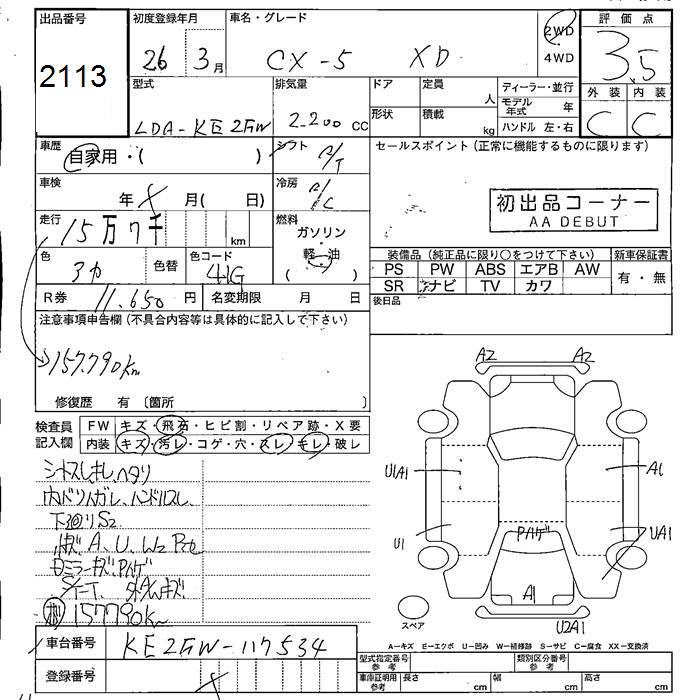 出品番号 初度登録年月 車名・グレード 評価点
2113 26 3月 CX-5 XD 2WD 4WD 3.5
外装 内装
C C
型式 排気量 ドア 定員 人 ディーラー・並行
LDA-KE2FW 2.200 CC 形状 積載 kg モデル年式 年
ハンドル 左・右
車歴 自家用・( ) シフト A/T セールスポイント(正常に機能するものに限ります)
車検 年 月( 日) 冷房 A/C
初出品コーナー
AA DEBUT
走行 15万7千 km 燃料 ガソリン・軽油 ( )
色 色替 色コード 41G
装備品(純正品に限り○をつけて下さい) 新車保証書
PS PW ABS エアB AW 有・無
SR ナビ TV カワ
R券 11.650円 名変期限 月 日 後日品
注意事項申告欄(不具合内容等は具体的に記入して下さい)
157.790km
修復歴 有〔箇所 〕
検査員記入欄 FW キズ・飛石・ヒビ割・リペア跡・X要
内装 キズ・汚レ・コゲ・穴・スレ・キレ・破レ
内ドリンガレ、ハンドルスレ
下回りS2
A、U、W2
157790km
A2 A2
U1A1 A1
U1 Pハゲ UA1
A1
スペア U2A1
A-キズ E-エクボ U-凹み W-補修跡 S-サビ C-腐食 XX-交換済
車台番号 KE2FW-117534
登録番号
型式指定番号参考 類別区分番号参考
車庫証明用参考 長さ cm 幅 cm 高さ cm